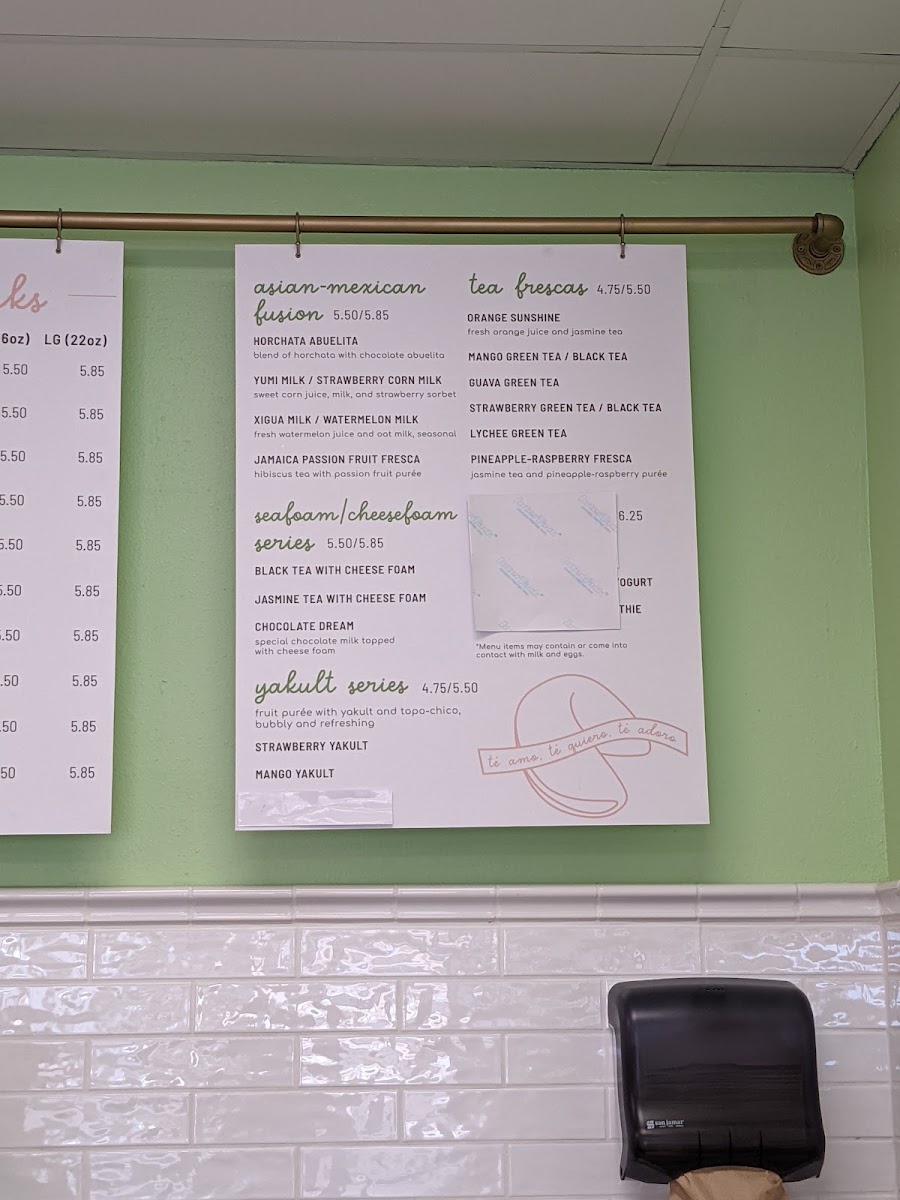 LG (22oz)
5.50 5.85
5.50 5.85
5.50 5.85
5.50 5.85
5.50 5.85
5.50 5.85
5.50 5.85
.50 5.85
.50 5.85
50 5.85
asian-mexican
fusion 5.50/5.85
HORCHATA ABUELITA
blend of horchata with chocolate abuelita
YUMI MILK / STRAWBERRY CORN MILK
sweet corn juice, milk, and strawberry sorbet
XIGUA MILK / WATERMELON MILK
fresh watermelon juice and oat milk, seasonal
JAMAICA PASSION FRUIT FRESCA
hibiscus tea with passion fruit purée
seafoam/cheesefoam
series 5.50/5.85
BLACK TEA WITH CHEESE FOAM
JASMINE TEA WITH CHEESE FOAM
CHOCOLATE DREAM
special chocolate milk topped
with cheese foam
yakult series 4.75/5.50
fruit purée with yakult and topo-chico,
bubbly and refreshing
STRAWBERRY YAKULT
MANGO YAKULT
tea frescas 4.75/5.50
ORANGE SUNSHINE
fresh orange juice and jasmine tea
MANGO GREEN TEA / BLACK TEA
GUAVA GREEN TEA
STRAWBERRY GREEN TEA / BLACK TEA
LYCHEE GREEN TEA
PINEAPPLE-RASPBERRY FRESCA
jasmine tea and pineapple-raspberry purée
6.25
OGURT
THIE
*Menu items may contain or come into
contact with milk and eggs.
té amo, té quiero, té adoro
san jamar